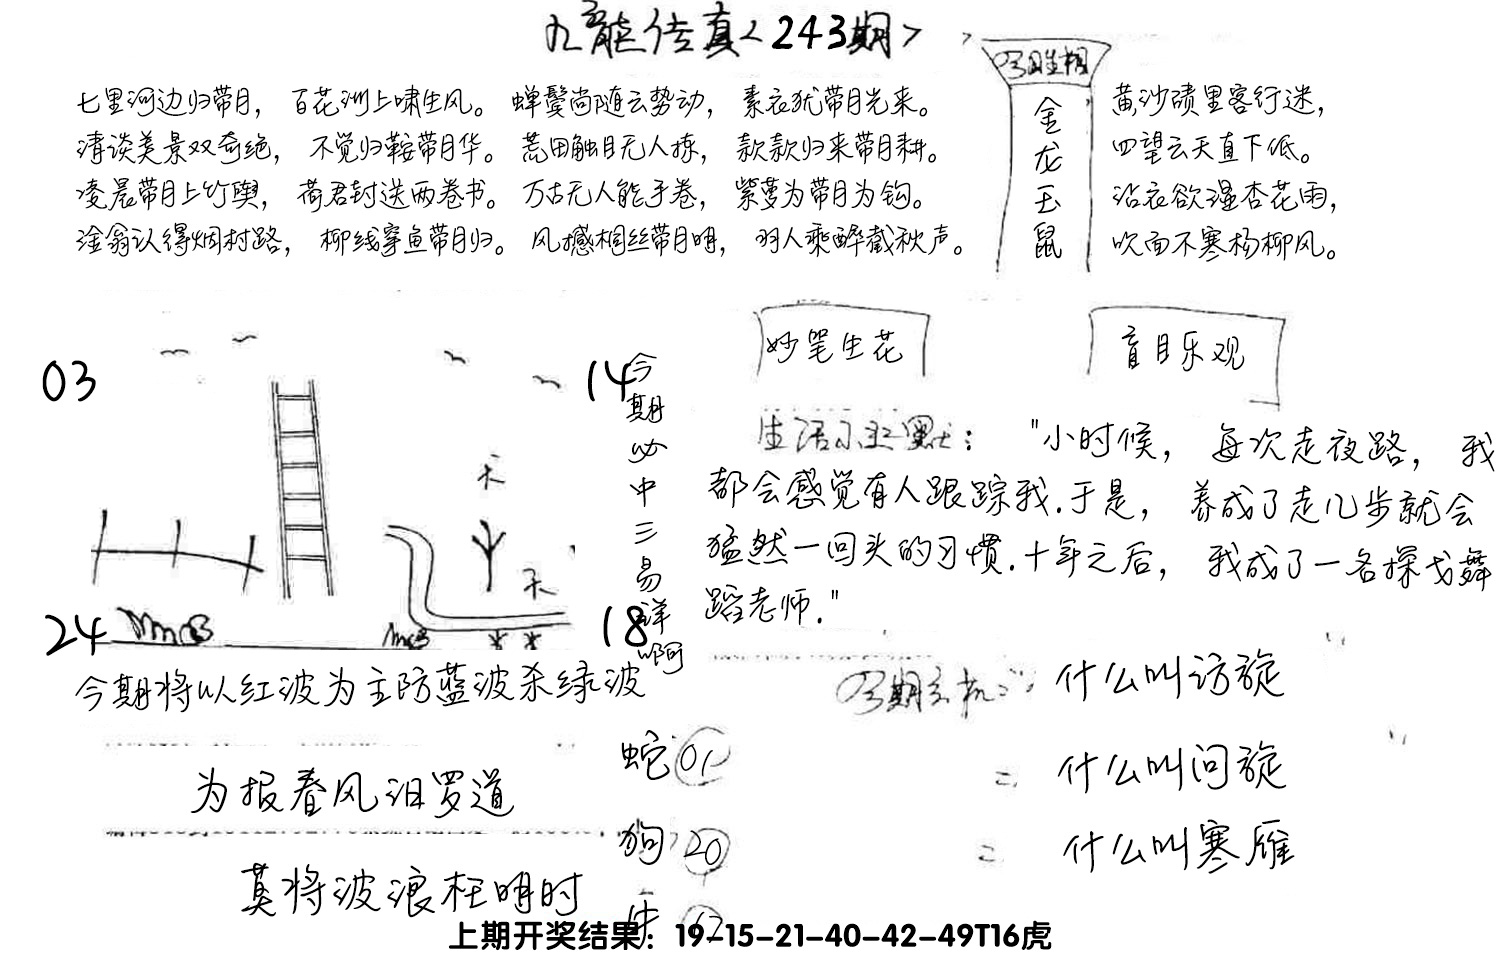 九龙传真<243期>
七里河边归带月，百花洲上啸生风。蝉鬓尚随云势动，素衣犹带月光来。
清谈美景双奇绝，不觉归鞍带月华。荒田触目无人拣，款款归来带月耕。
凌晨带月上竹舆，荷君封送两卷书。万古无人能手卷，紫萝为带月为钩。
淦翁认得烟村路，柳线穿鱼带月归。风撼桐丝带月明，羽人乘醉截秋声。
今期生相
金龙玉鼠
黄沙碛里客行迷，
四望云天直下低。
沾衣欲湿杏花雨，
吹面不寒杨柳风。
03
14
24
18
天
天
今期必中三易详啊
今期将以红波为主防蓝波杀绿波
妙笔生花
盲目乐观
生活小幽默：
"小时候，每次走夜路，我
都会感觉有人跟踪我.于是，养成了走几步就会
猛然一回头的习惯.十年之后，我成了一名探戈舞
蹈老师."
今期玄机：什么叫访旋
= 什么叫问旋
= 什么叫寒雁
为报春风汨罗道
莫将波浪枉明时
蛇 01
狗 20
牛
上期开奖结果：19-15-21-40-42-49T16虎